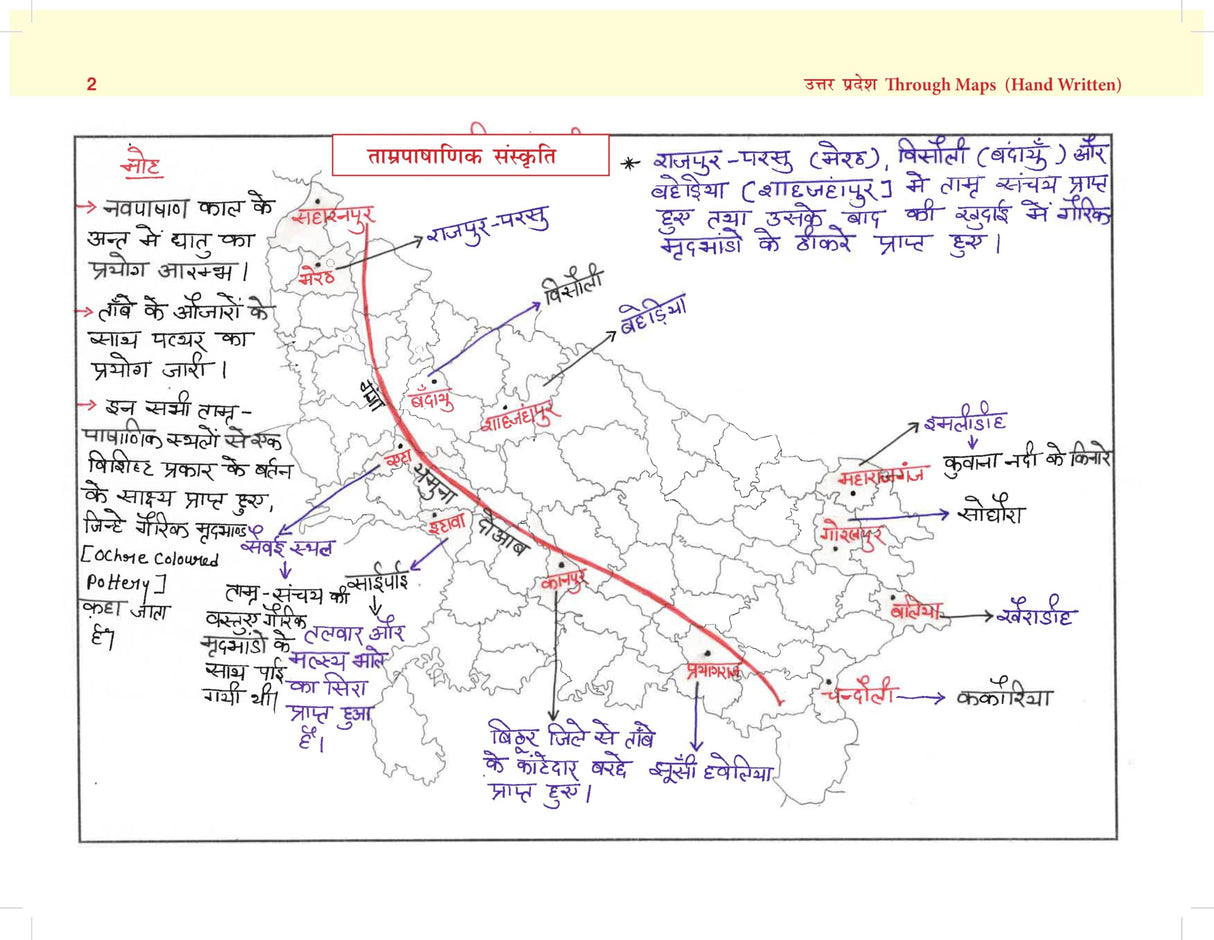 2
उत्तर प्रदेश Through Maps (Hand Written)
ताम्रपाषाणिक संस्कृति
* राजपुर-परसु (मेरठ), विसौली (बंदायुँ) और
बहेड़िया (शाहजहांपुर] मे ताम्र संचय प्राप्त
हुए तथा उसके बाद की खुदाई में गैरिक
मृदभांडो के ठीकरे प्राप्त हुए।
नोट
→ नवपाषाण काल के
अन्त में धातु का
प्रयोग आरम्भ।
→ ताँबे के औजारों के
साथ पत्थर का
प्रयोग जारी।
→ इन सभी ताम्र-
पाषाणिक स्थलों से एक
विशिष्ट प्रकार के बर्तन
के साक्ष्य प्राप्त हुए,
जिन्हे गैरिक मृदभाण्ड
[Ochre Coloured
Pottery]
कहा जाता
है।
सहारनपुर
मेरठ
राजपुर-परसु
विसौली
बहेड़िया
बँदायु
शाहजहांपुर
गंगा
यमुना
दोआब
एटा
सैवई स्थल
ताम्र-संचय की
वस्तुए गैरिक
मृदभांडो के
साथ पाई
गयी थी।
इटावा
साईपाई
तलवार और
मत्स्य भाले
का सिरा
प्राप्त हुआ
है।
कानपुर
बिठूर जिले से ताँबे
के कांटेदार बरछे
प्राप्त हुए।
प्रयागराज
झूसी हवेलिया
महाराजगंज
इमलीडीह
कुवाना नदी के किनारे
गोरखपुर
सोधौरा
बलिया
खैराडीह
चन्दौली
ककोरिया